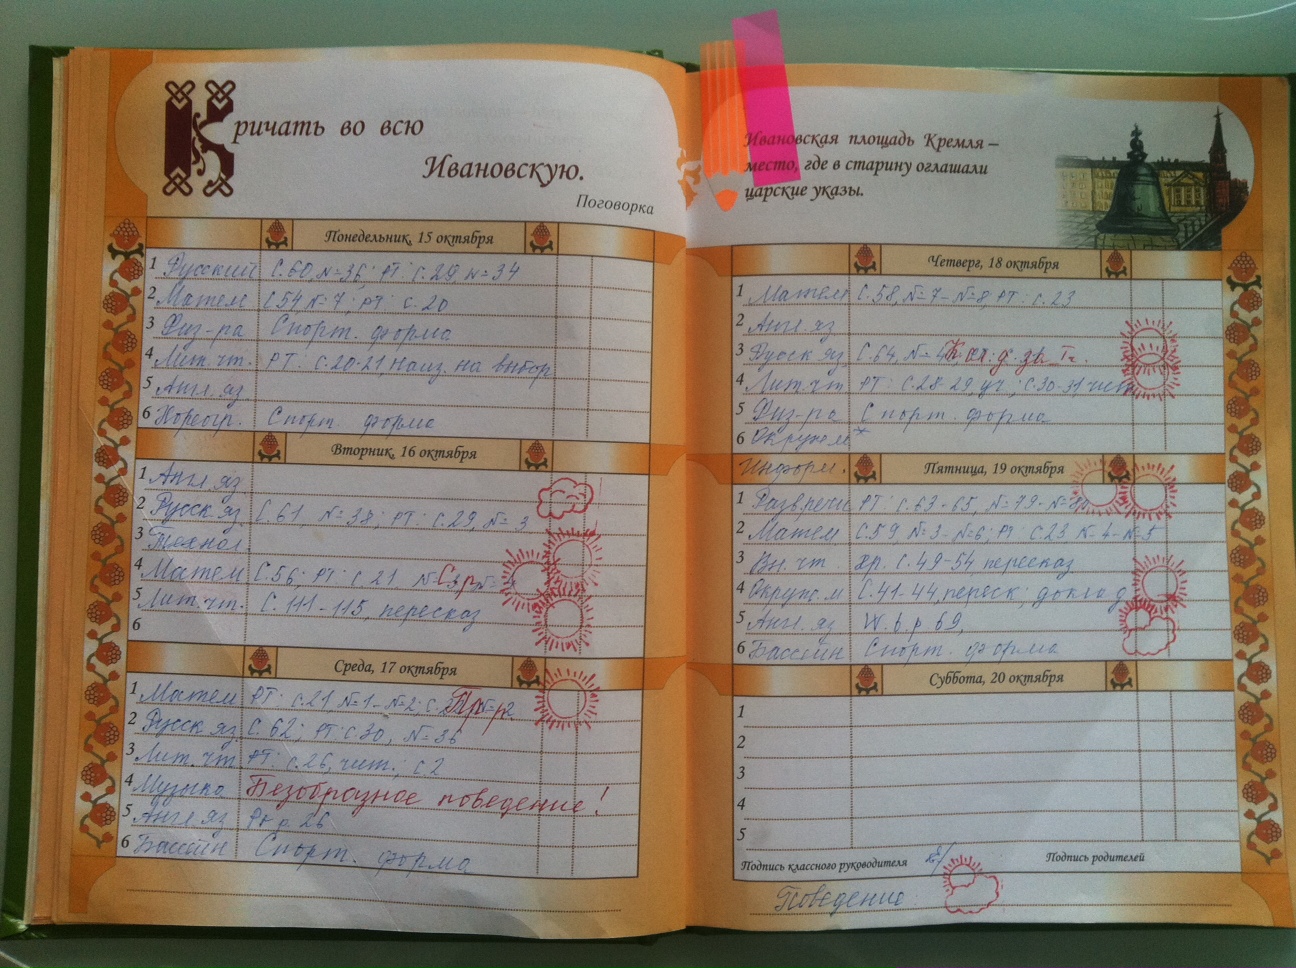 Кричать во всю
Ивановскую.
Поговорка
Понедельник, 15 октября
1 Русский С.60, №36; РТ: С.29, №34
2 Матем С.54 №7; РТ: С.20
3 Физ-ра Спорт. форма
4 Лит.чт. РТ: С.20-21 наиз. на выбор
5 Англ.яз
6 Хореогр. Спорт форма
Вторник, 16 октября
1 Англ.яз
2 Русск яз С.61, №38; РТ: С.29, № 3
3 Технол
4 Матем С.56; РТ: С 21 Ср
5 Лит.чт. С. 111-115, пересказ
6
Среда, 17 октября
1 Матем РТ: С.21 №1-№2; С.
2 Русск яз С. 62; РТ: С 30, №36
3 Лит.чт РТ: С.26, чит.; С 2
4 Музыка Безобразное поведение!
5 Англ яз p 26
6 Бассейн Спорт. форма
Ивановская площадь Кремля –
место, где в старину оглашали
царские указы.
Четверг, 18 октября
1 Матем С.58, №7-№8, РТ: С.23
2 Англ яз
3 Русск яз С.64, №
4 Лит.чт РТ: С.28-29, уч.; С.30-31 чит
5 Физ-ра Спорт. форма
6 Окруж.м
Информ. Пятница, 19 октября
1 Разв.речи РТ: С.63-65, №79-№
2 Матем С.59 №3-№6; РТ С.23 №4-№5
3 Вн. чт хр. С.49-54 пересказ
4 Окруж.м С.41-44, переск; доклад
5 Англ яз W.b p 69,
6 Бассейн Спорт. форма
Суббота, 20 октября
1
2
3
4
5
Подпись классного руководителя Подпись родителей
Поведение